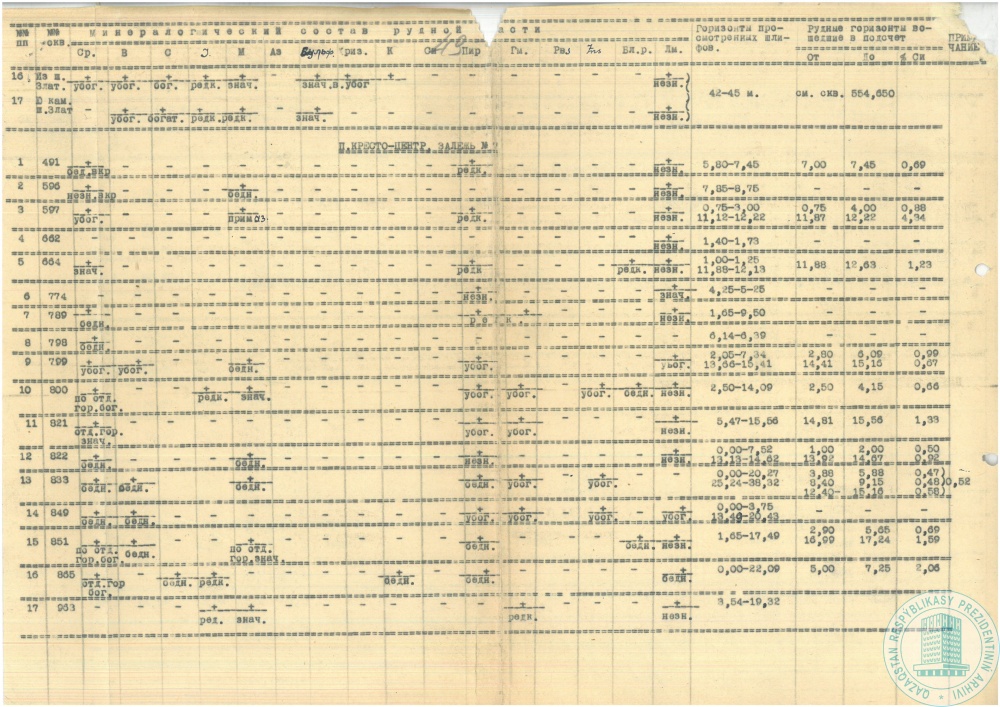 №№ №№ Минералогический состав рудной части Горизонты про- Рудные горизонты во-
пп скв. смотренных шли- шедшие в подсчет ПРИМЕ
Ср. В С Э М Аз Криз. К См Пир Гм. Рвз Бл.р. Лм. фов. От До % Си ЧАНИЕ
43
16 Из ш. + + + + + – + + + – – – – – – – +
Злат. убог. убог. бог. редк. знач. знач. в.убог незн.)
42-45 м. см. скв. 554,650
17 Ю кам. – + + + + – + – – – – – – – – – +
ш.Злат убог. богат. редк. редк. знач. незн.)
П.КРЕСТО-ЦЕНТР. ЗАЛЕЖЬ №
1 491 + – – – – – – – – – + – – – – – + 5,80-7,45 7,00 7,45 0,69
бед.вкр редк. незн.
2 596 + – – – + – – – – – – – – – – – + 7,85-8,75 – – –
незн.вкр бедн. незн.
3 597 + – – – + – – – – – + – – – – – + 0,75-3,00 0,75 4,00 0,88
убог. прим оз. редк. незн. 11,12-12,22 11,87 12,22 4,34
4 662 – – – – – – – – – – – – – – – – + 1,40-1,73 – – –
незн.
5 664 + – – – – – – – – – + – – – + + 1,00-1,25
знач. редк редк. незн. 11,88-12,13 11,88 12,63 1,23
6 774 – – – – – – – – – – + – – – – – + 4,25-5-25 – – –
незн. знач.
7 789 + – – – – – – – – – + + – – – – – 1,65-9,50 – – –
бедн. редк.
8 798 + – – – – – – – – – – – – – – – – 6,14-6,39 – – –
бедн.
9 799 + + – – + – – – – – + – – – – – + 2,05-7,34 2,80 6,09 0,99
убог. убог. бедн. убог. убог. 13,66-15,41 14,41 15,16 0,67
10 800 + – – + + – – – – – + + – + + + 2,50-14,09 2,50 4,15 0,66
по отд. редк. знач. убог. убог. убог. бедн. незн.
гор.бог.
11 821 + – – – – – – – – – + + – – – – + 5,47-15,56 14,81 15,56 1,33
отд.гор. убог. убог. незн.
знач.
12 822 + – – – + – – – – – + – – – – – + 0,00-7,52 1,00 2,00 0,50
бедн. бедн. незн. незн. 13,13-14,62 13,92 14,67 0,92
13 833 + + – – + – – – – – + + – + – – – 0,00-20,27 3,88 5,88 0,47)
бедн. бедн. бедн. бедн. убог. убог. 25,24-38,32 8,40 9,15 0,48)0,52
12,40- 15,16 0,58)
14 849 + + – – – – – – – – + + – + – + 0,00-3,75 – – –
бедн. бедн. убог. убог. убог. убог. 13,49-26,43
15 851 + + – – + – – – – – + – – – + + 1,65-17,49 2,90 5,65 0,69
по отд. бедн. по отд. бедн. бедн. незн. 16,99 17,24 1,59
гор.бог. гор.знач.
16 865 + – + + – – – – + – + – – – – – + 0,00-22,09 5,00 7,25 2,06
отд.гор бедн. редк. бедн. бедн. бедн.
бог.
17 963 – – – + + – – – – – – + – – – – + 3,54-19,32 – – –
ред. знач. редк. незн.
QAZAQSTAN RESPYBLIKASY PREZIDENTINIŃ ARHIVI